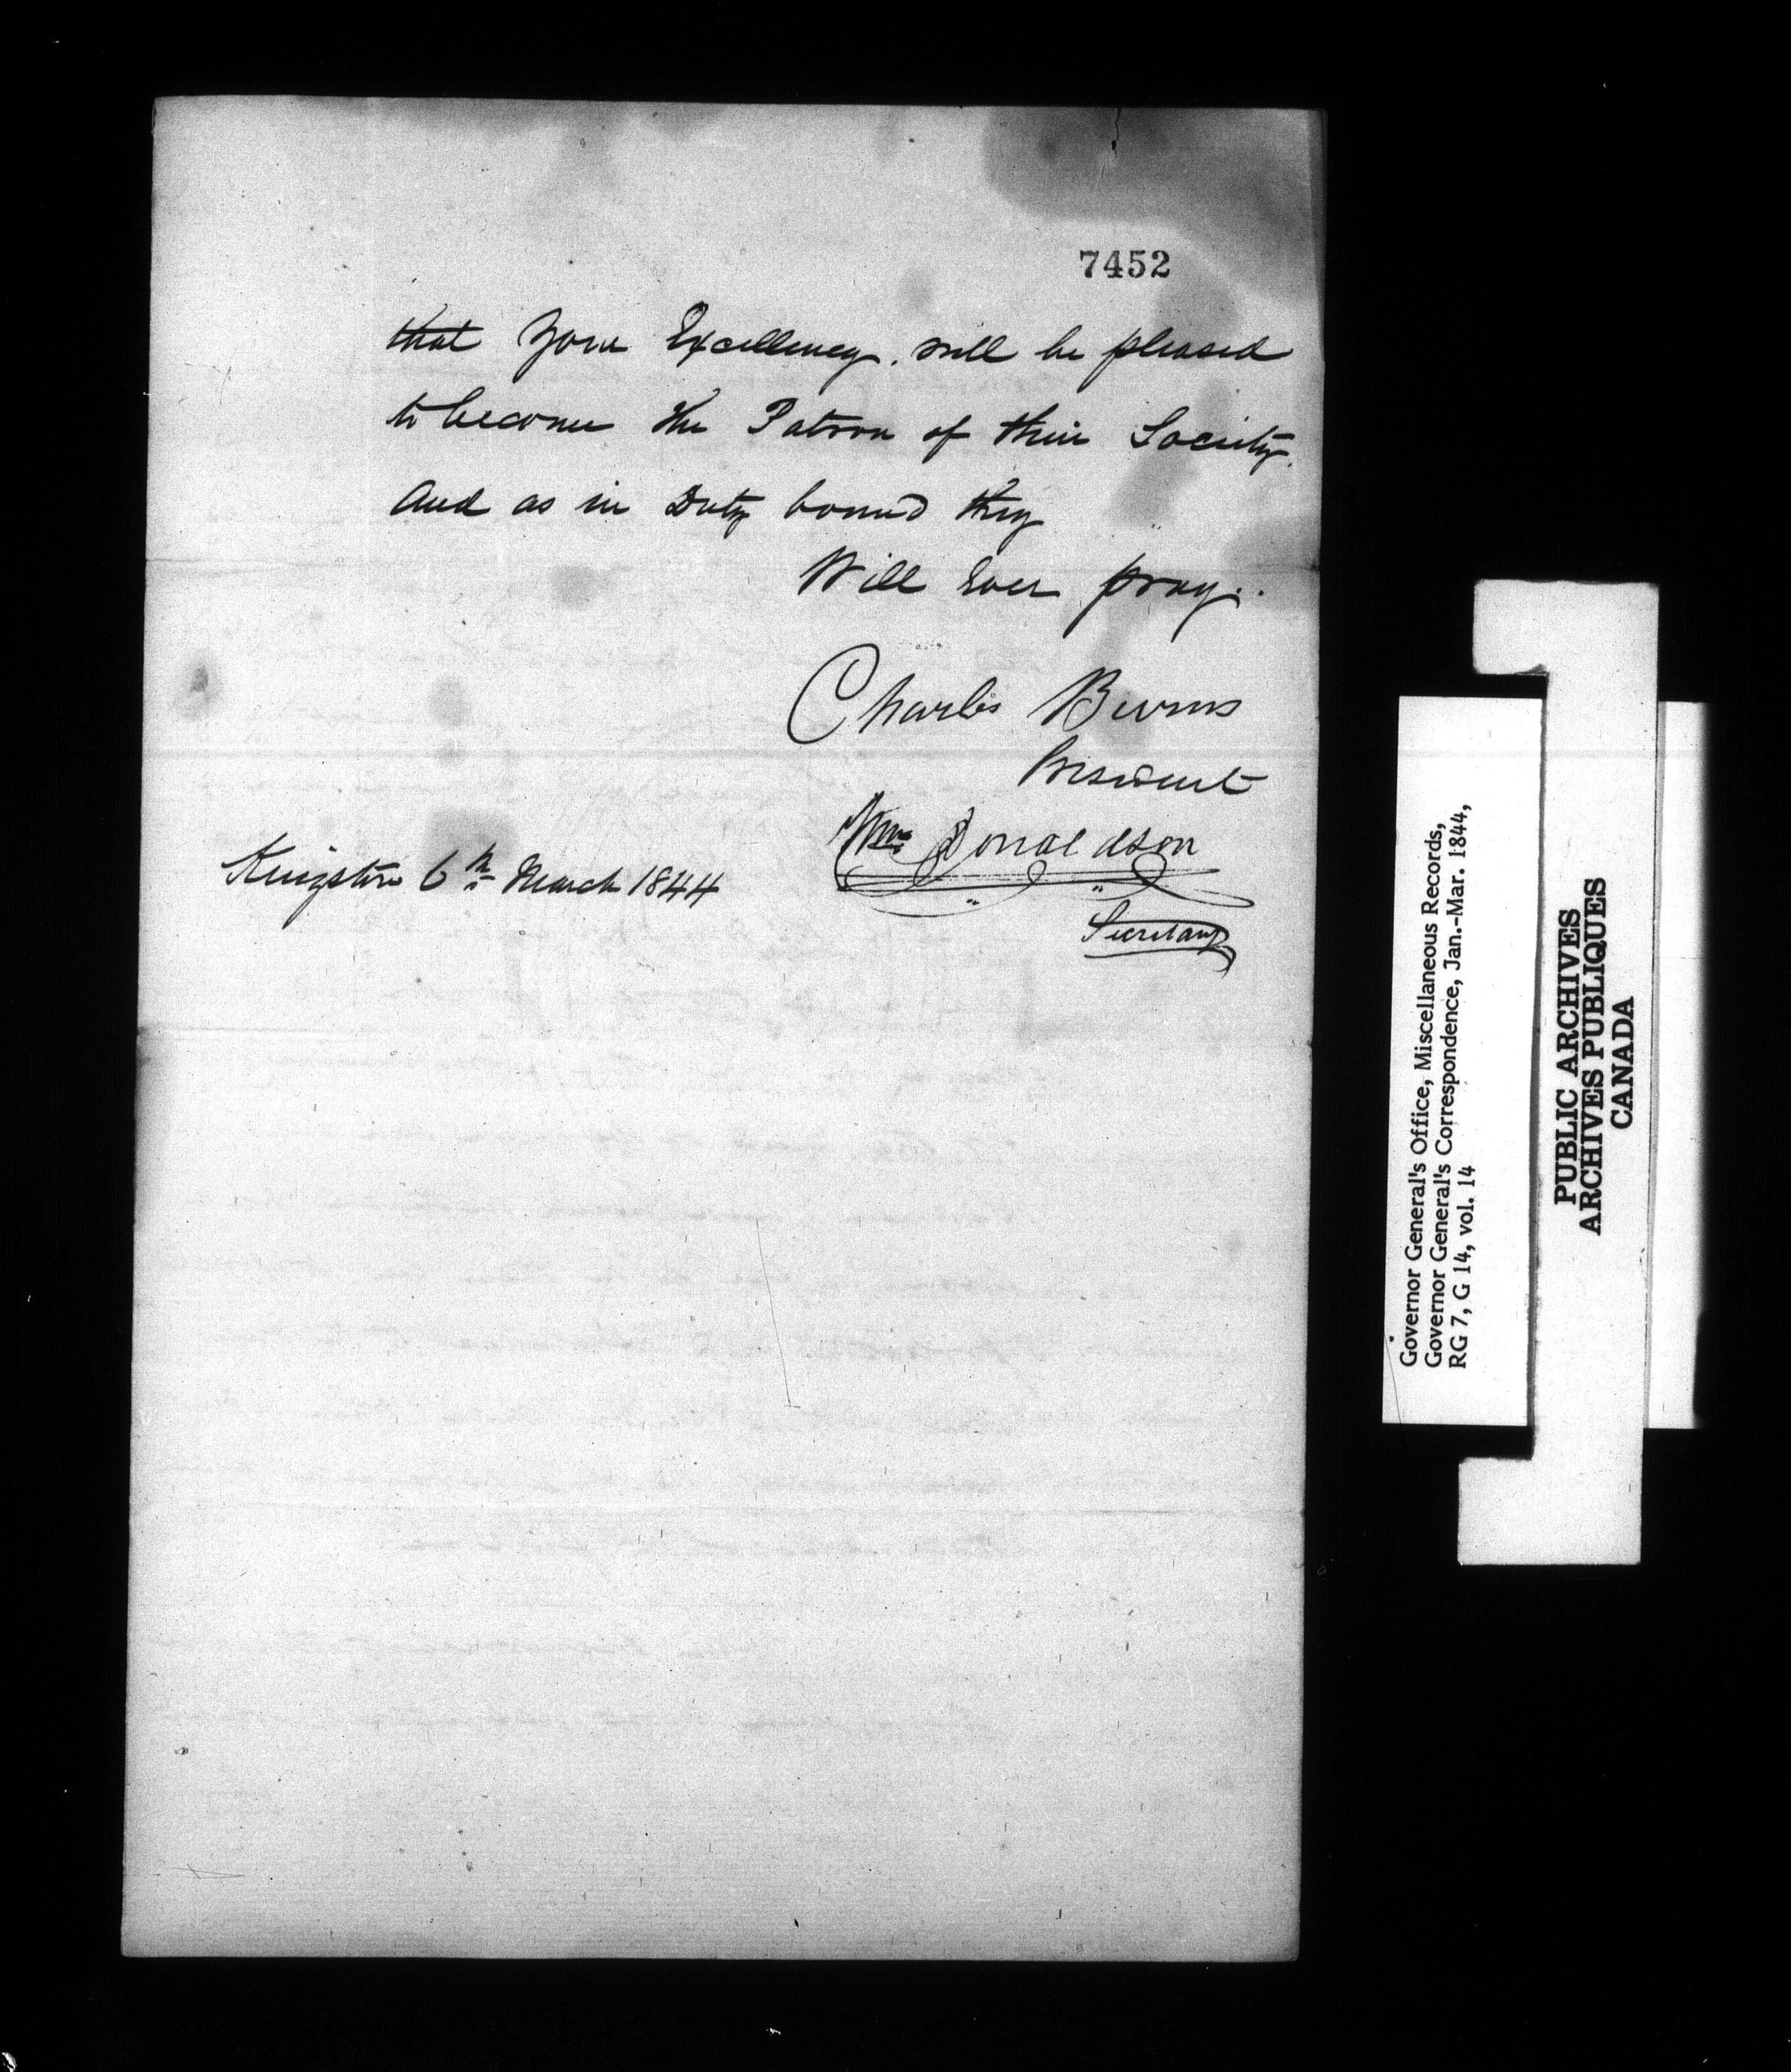 7452
that Your Excellency. will be pleased
to become the Patron of their Society.
And as in Duty bound they
Will Ever pray..
Charles Burns
President
Wm Donaldson
Kingston 6th March 1844
Secretary
Governor General's Office, Miscellaneous Records,
Governor General's Correspondence, Jan.-Mar. 1844,
RG 7, G 14, vol. 14
PUBLIC ARCHIVES
ARCHIVES PUBLIQUES
CANADA